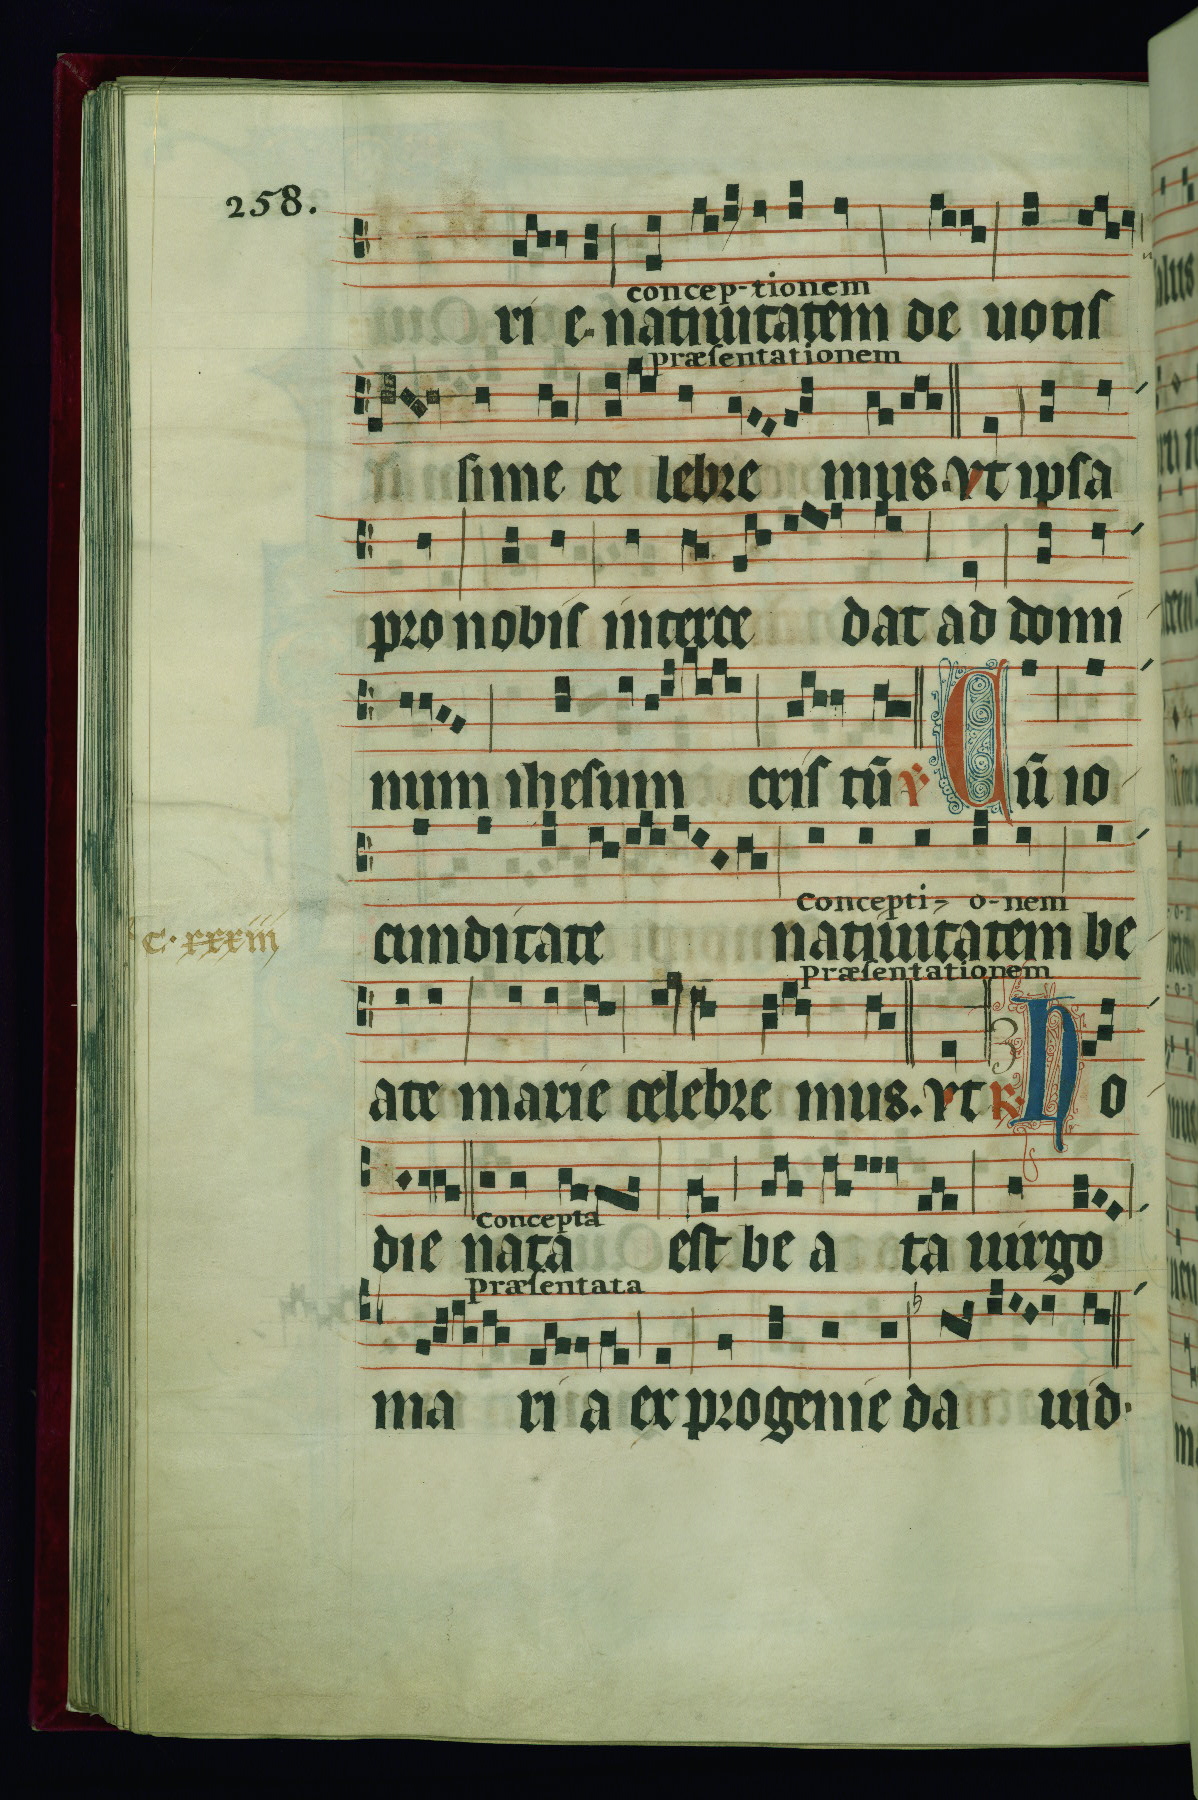 258.
concep-tionem
ri e. natiuitatem de uotis
præsentationem
sime ce lebre mus. vt ipsa
pro nobis interce dat ad domi
num ihesum cris tū ℣ Cū io
Concepti- o-nem
cunditate natiuitatem be
C. xxxiii
Præsentationem
ate marie celebre mus. vt ℟. Ho
Concepta
die nata est be a ta uirgo
Præsentata
ma ri a ex progenie da uid.